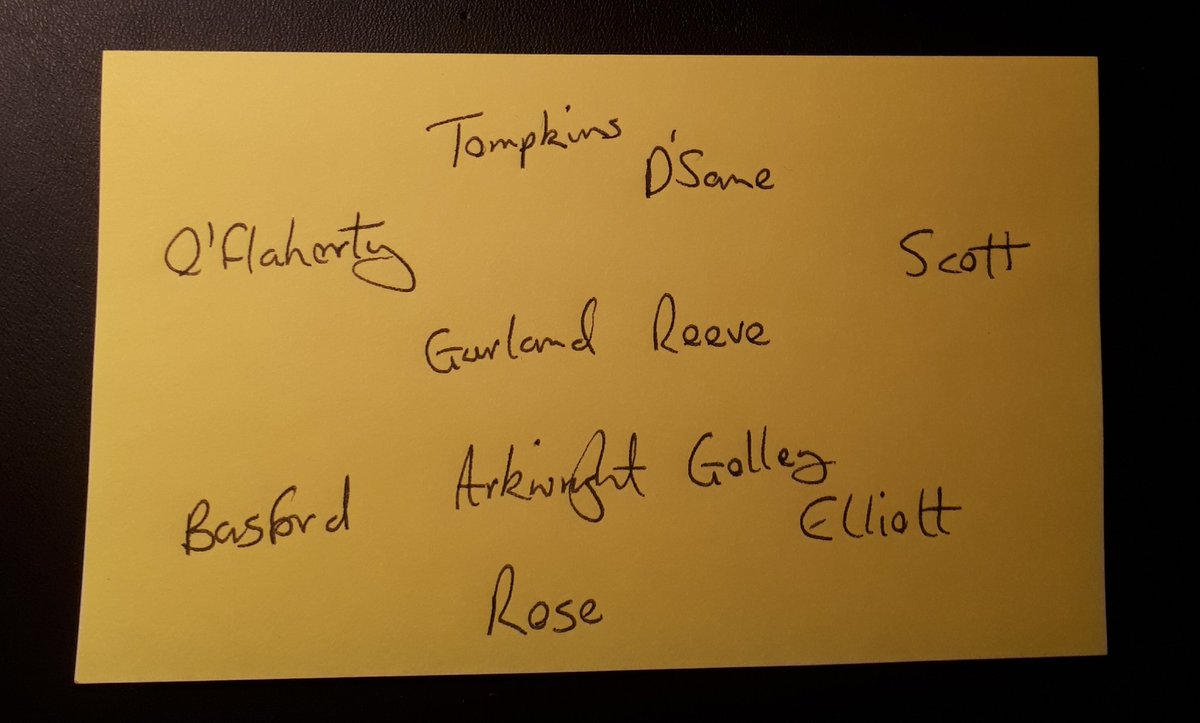 Tompkins
D'Sane
O'Flaherty
Scott
Garland Reeve
Arkwright Golley
Basford
Elliott
Rose